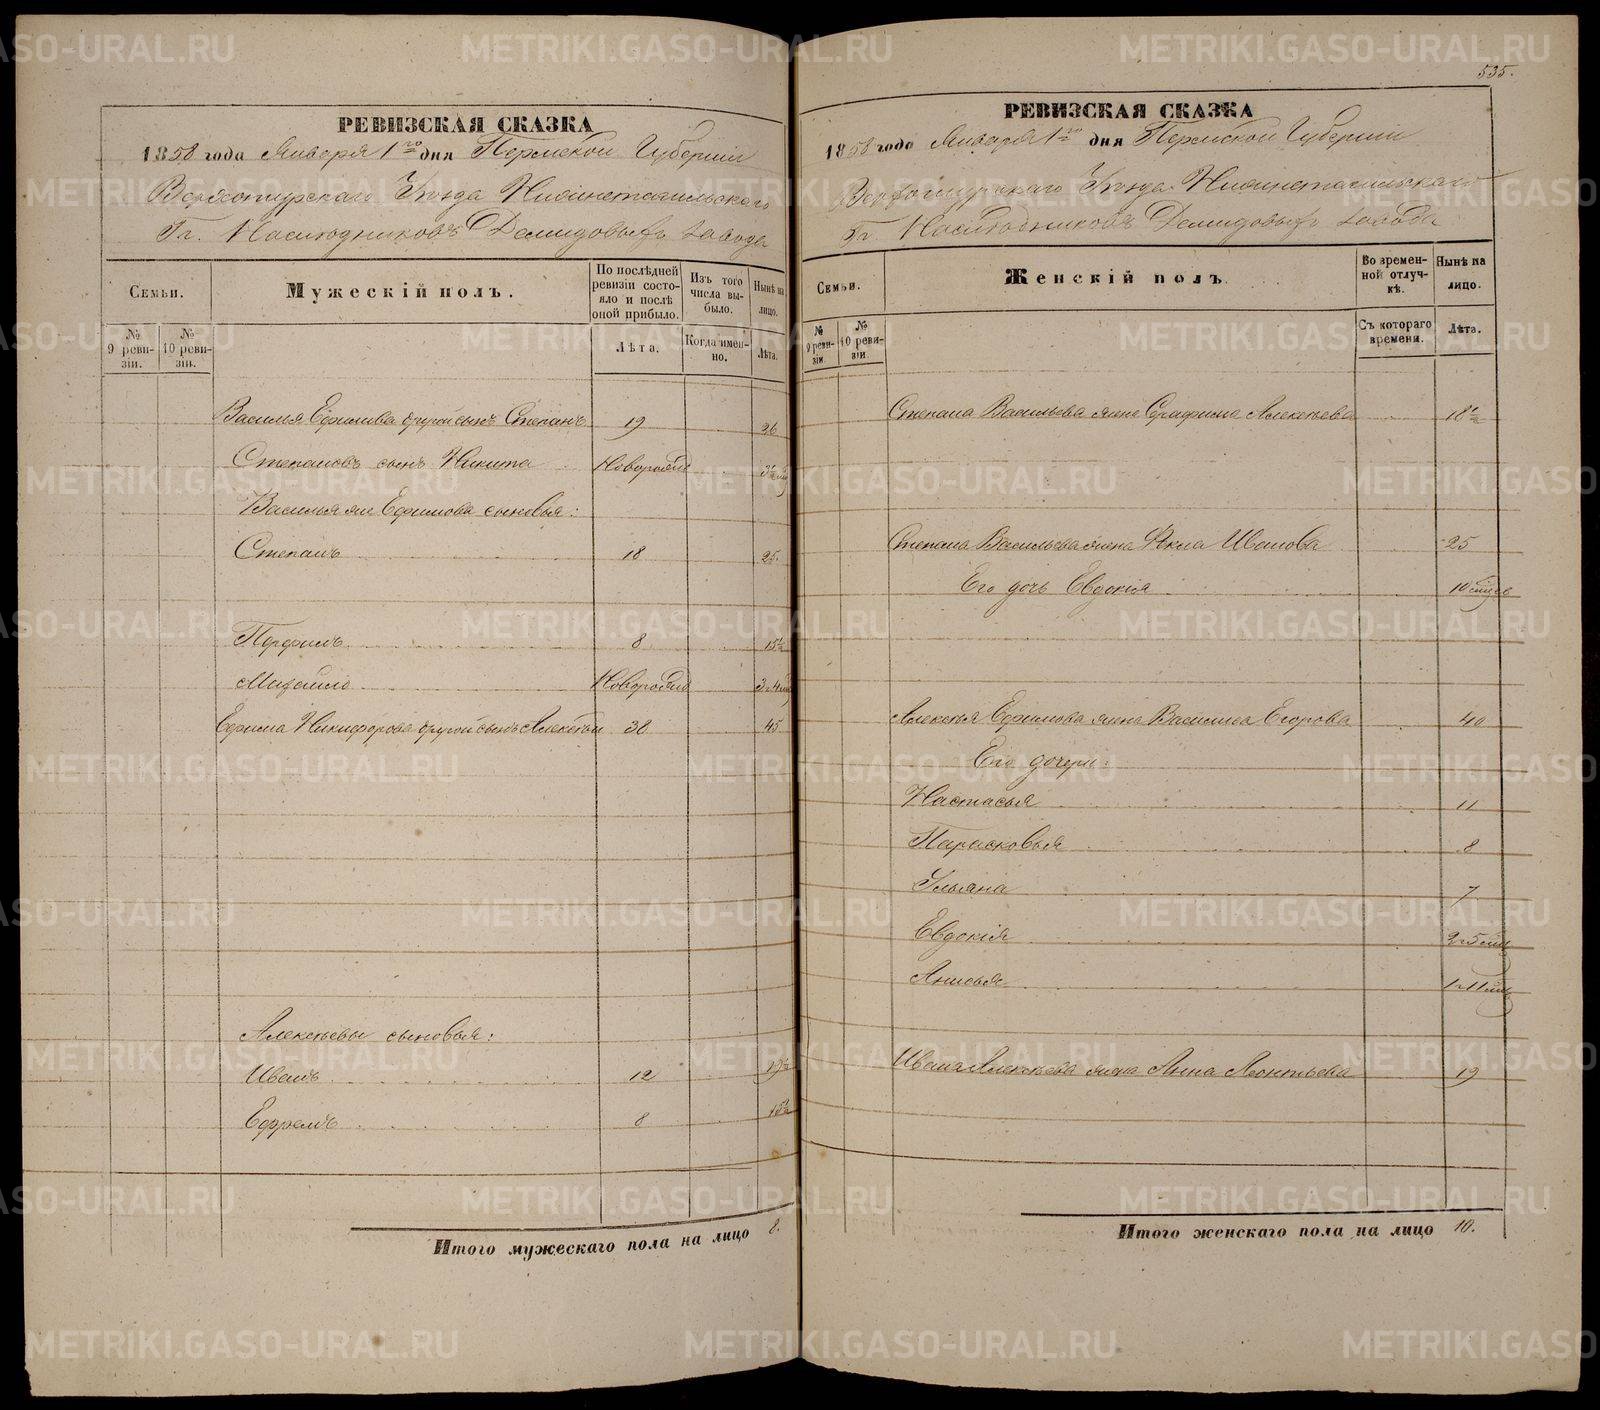 535.
РЕВИЗСКАЯ СКАЗКА
1858 года Января 1го дня Пермской Губерніи
Верхотурскаго Уѣзда Нижнетагильскаго
Гг. Наслѣдниковъ Демидовыхъ завода
Семьи.
Мужескій полъ.
По послѣдней ревизіи состояло и послѣ оной прибыло.
Изъ того числа выбыло.
Нынѣ на лицо.
№ 9 ревизіи.
№ 10 ревизіи.
Лѣта.
Когда именно.
Лѣта.
Василья Ефимова другой сынъ Степанъ 19 26
Степановъ сынъ Никита
Василья же Ефимова сыновья:
Степанъ 18 25
Перфилъ 8 15½
Михайло
Ефима Никифорова другой сынъ Алексѣй 38 45
Алексѣевы сыновья:
Иванъ 12 19½
Ефремъ 8 15½
Итого мужескаго пола на лицо 8.
РЕВИЗСКАЯ СКАЗКА
1858 года Января 1го дня Пермской Губерніи
Верхотурскаго Уѣзда Нижнетагильскаго
Гг. Наслѣдниковъ Демидовыхъ завода
Семьи.
Женскій полъ.
Во временной отлучкѣ.
Нынѣ на лицо.
№ 9 ревизіи.
№ 10 ревизіи.
Съ котораго времени.
Лѣта.
Степана Васильева жена Серафима Алексѣева 18½
Степана Васильева жена Ѳекла Иванова 25
Его дочь Евдокія
Алексѣя Ефимова жена Василиса Егорова 40
Его дочери:
Настасья 11
Парасковья 8
Ульяна 7
Евдокія
Анисья
Ивана Алексѣева жена Анна Леонтьева 19
Итого женскаго пола на лицо 10.
METRIKI.GASO-URAL.RU